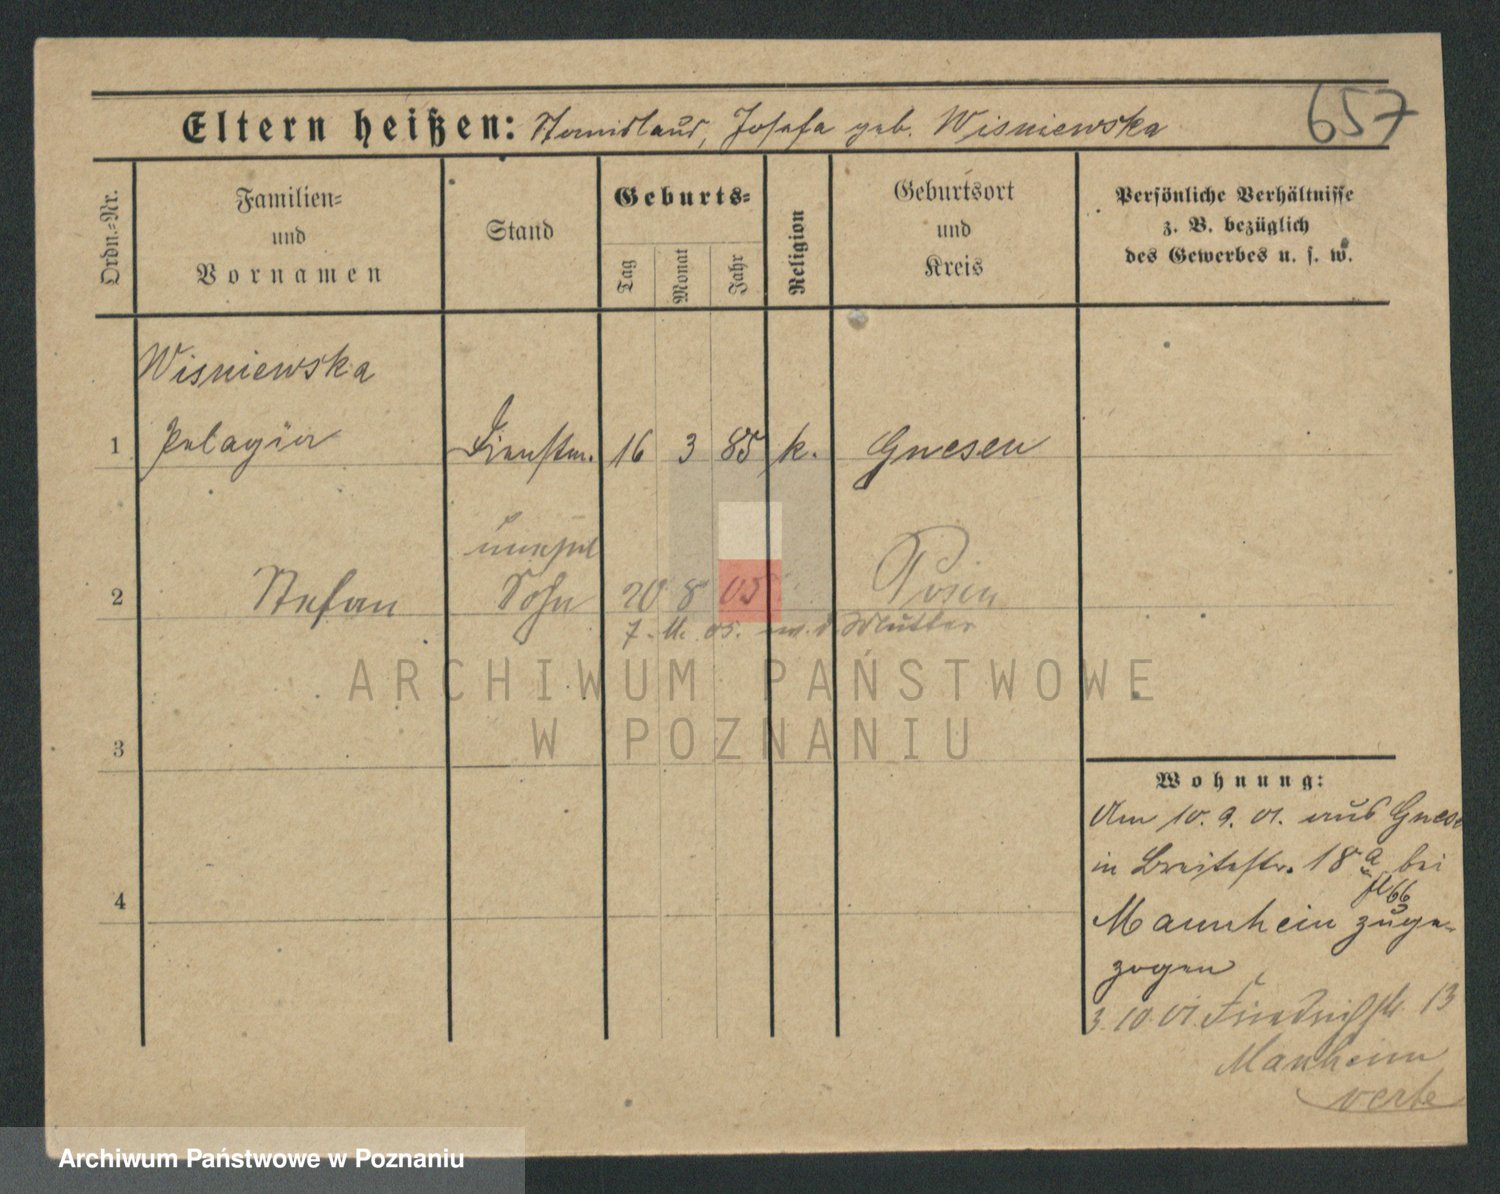 657
Eltern heißen: Stanislaus, Josefa geb. Wisniewska
Ordn.-Nr.
Familien-
und
Vornamen
Stand
Geburts-
Tag
Monat
Jahr
Religion
Geburtsort
und
Kreis
Persönliche Verhältnisse
z. B. bezüglich
des Gewerbes u. s. w.
Wisniewska
1 Pelagia Dienstm. 16 3 85 k. Gnesen
unehel
2 Stefan Sohn 20 8 05 Posen
7. 11. 05. Mutter
ARCHIWUM PAŃSTWOWE
W POZNANIU
3
4
Wohnung:
Am 10. 9. 01. aus Gnesen
in Breitestr. 18a bei
Mannheim zuge-
zogen
3. 10. 01 Friedrichstr. 13
Manheim
verte
Archiwum Państwowe w Poznaniu